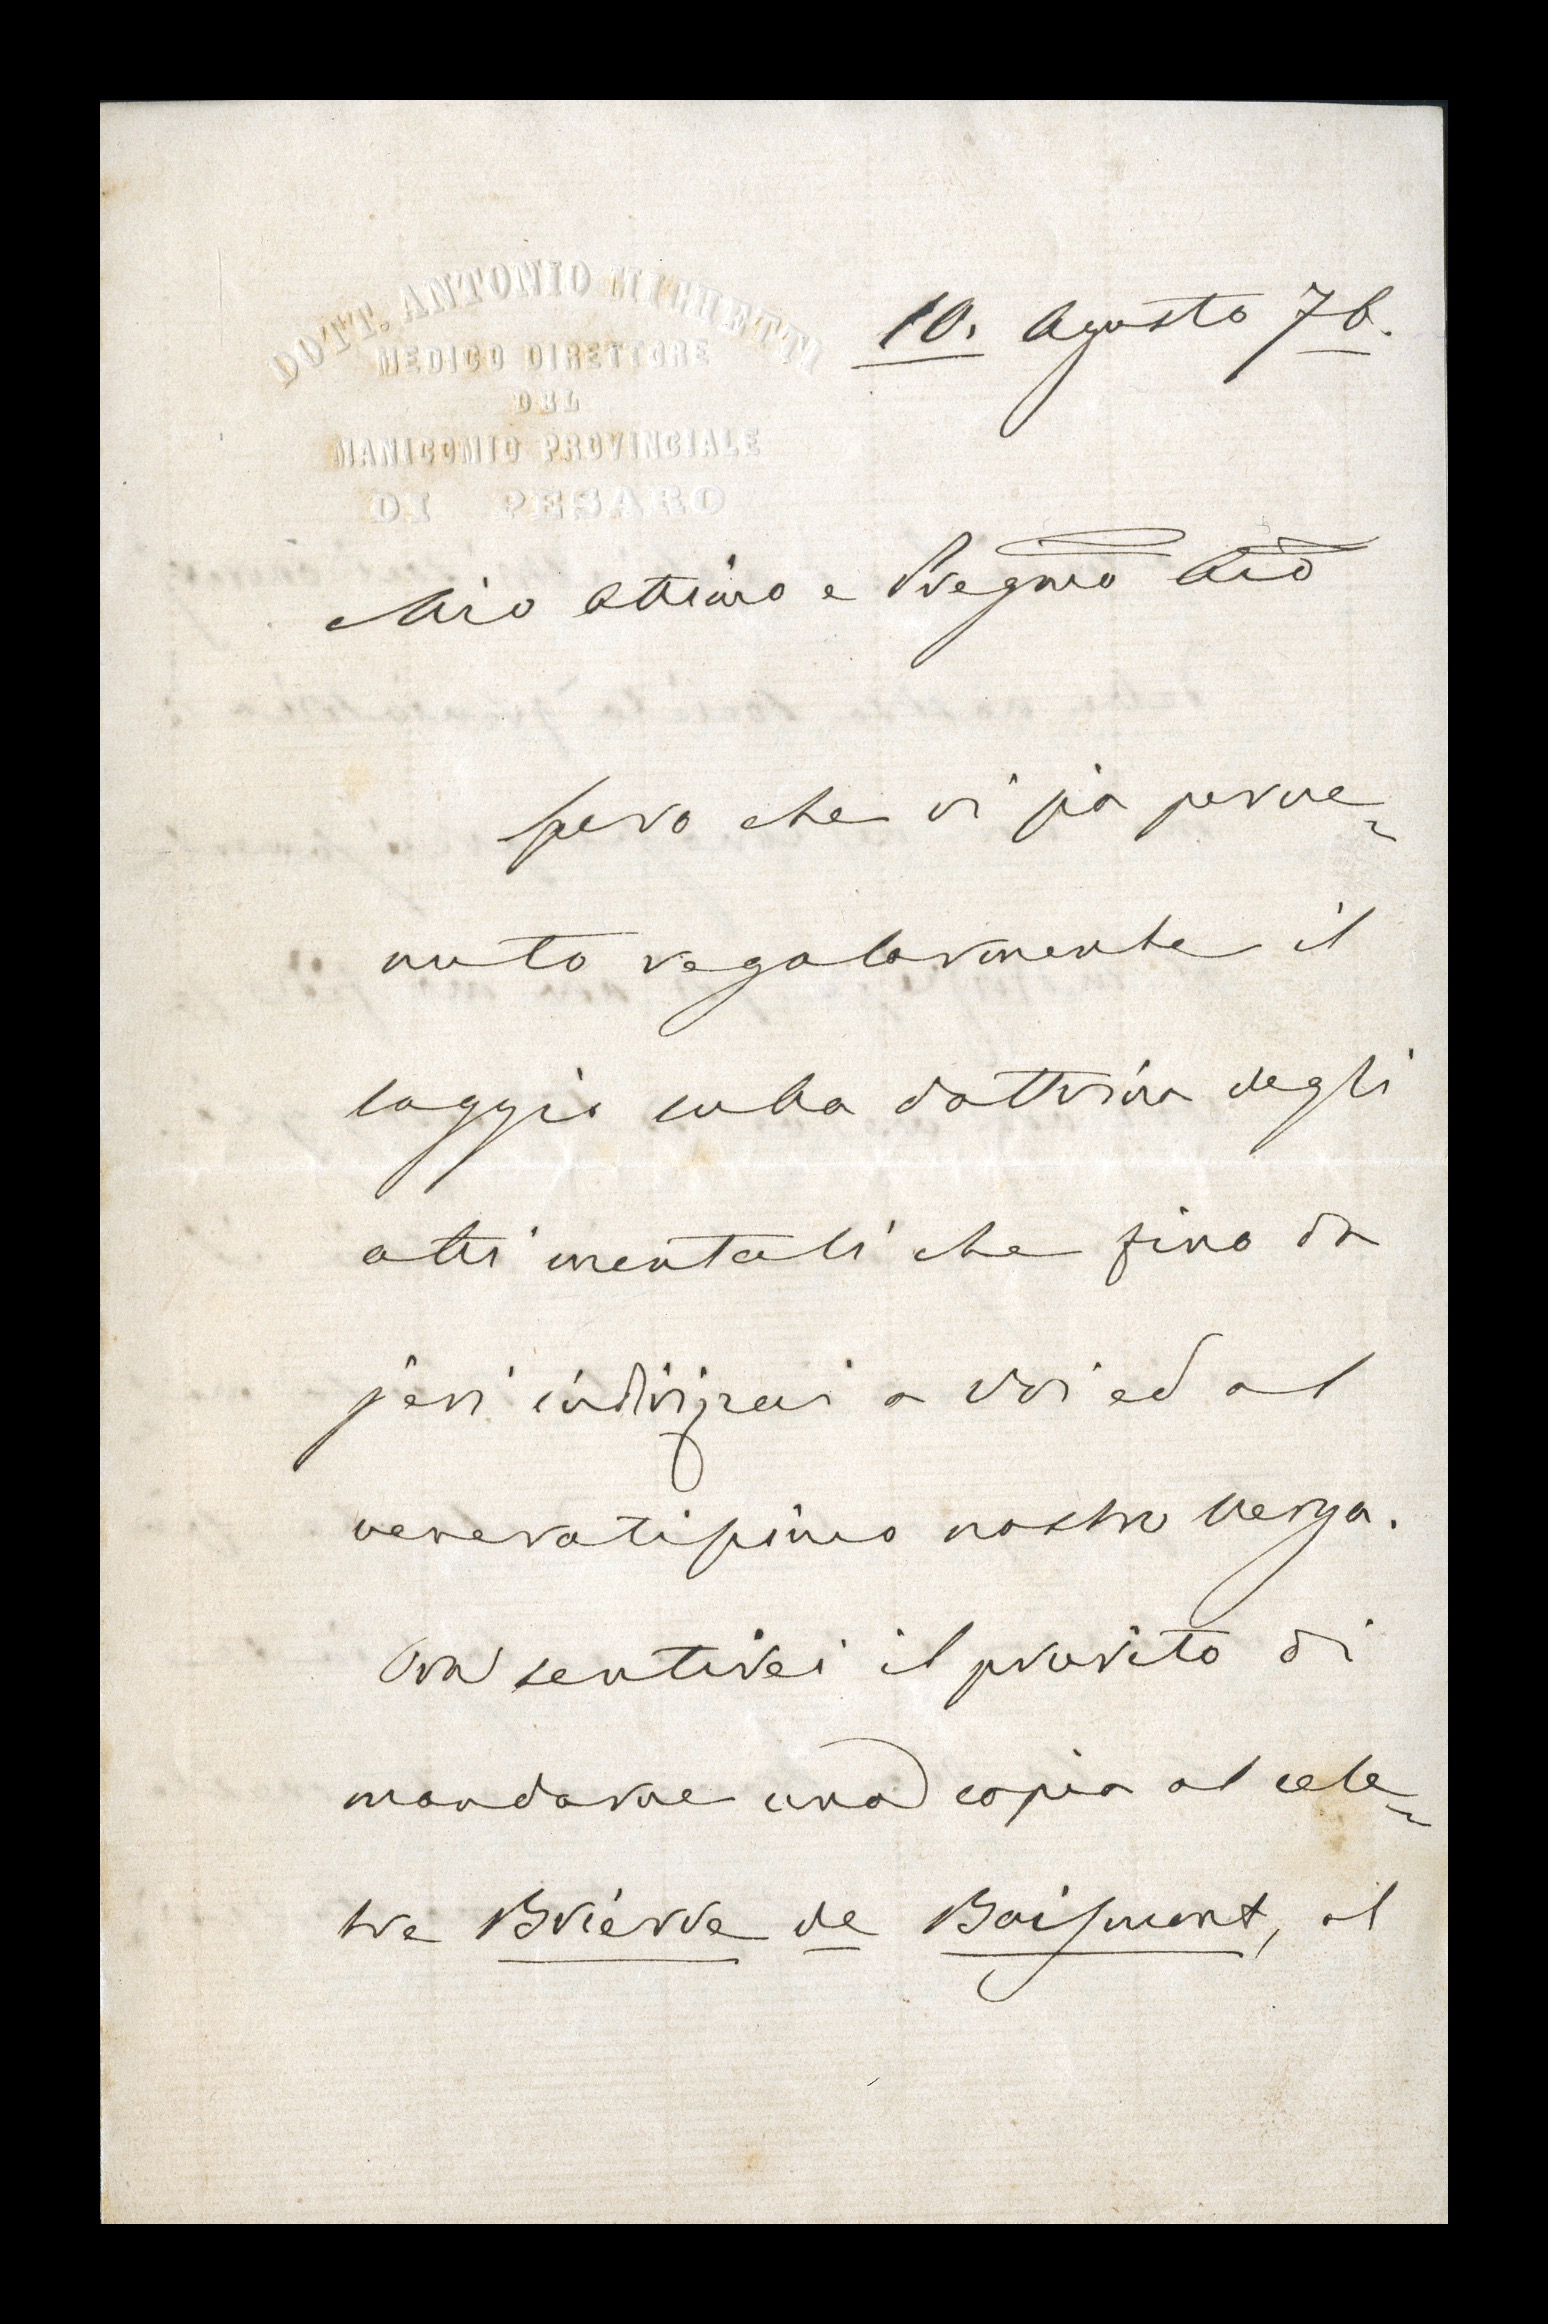 DOTT. ANTONIO MICHETTI
MEDICO DIRETTORE
DEL
MANICOMIO PROVINCIALE
DI PESARO
10. Agosto 76.
Mio ottimo e Pregmo
Spero che vi sia perve-
nuto regolarmente il
saggio sulla dottrina degli
atti mentali che fino da
jeri indirizzai a voi ed al
veneratissimo nostro Verga.
Ora sentirei il prurito di
mandarne una copia al cele-
bre Brierre de Boismont, al